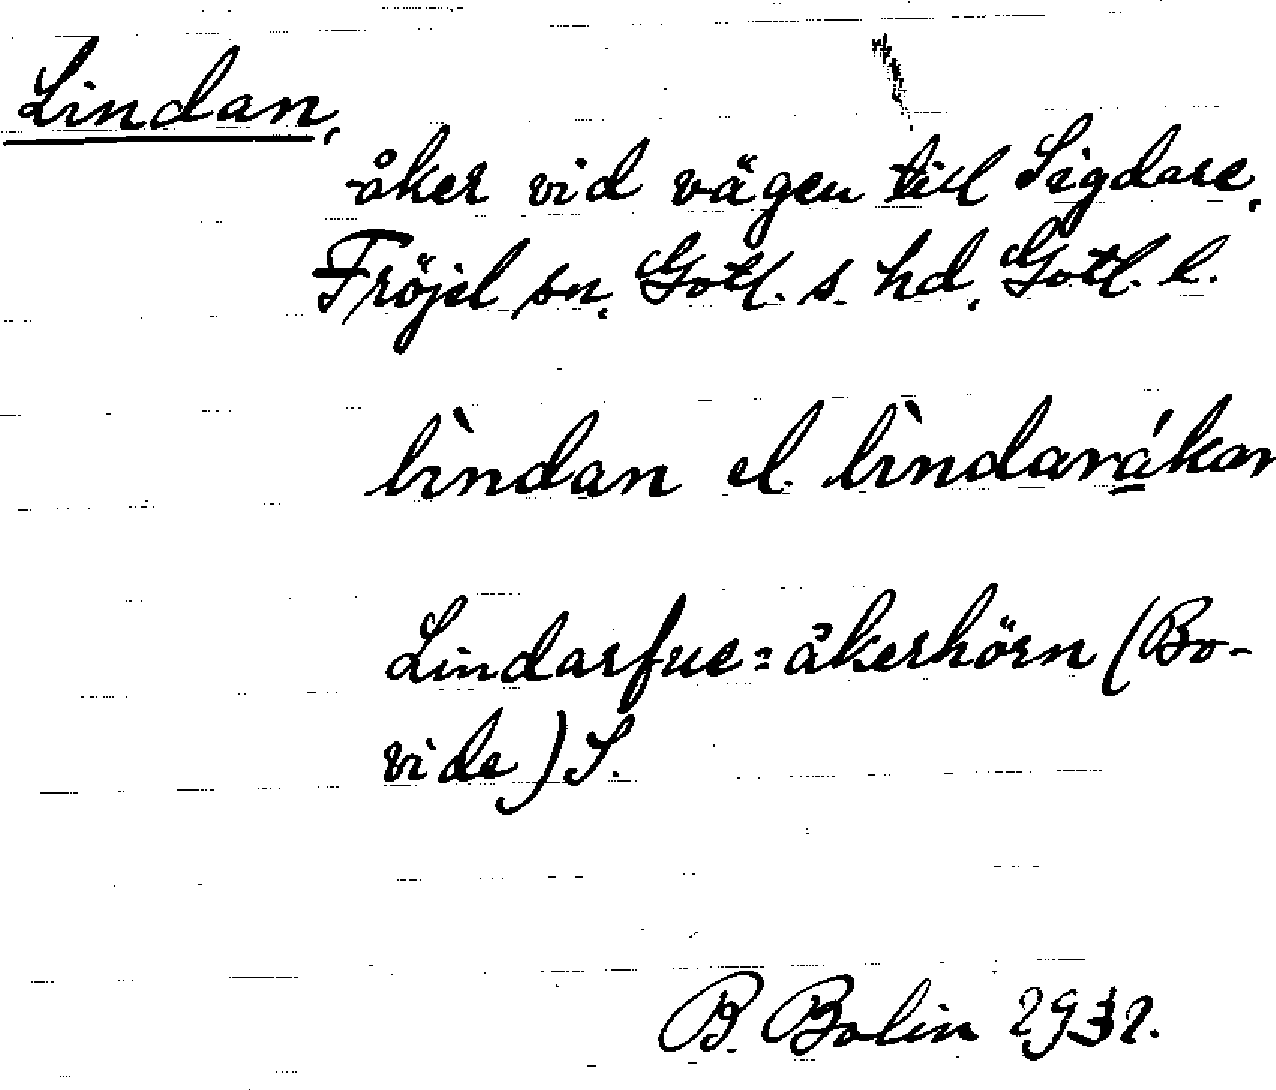 Lindan,
åker vid vägen till Sigdare,
Fröjel sn, Gotl. s. hd, Gotl. l.
lìndan el. lìndaråkar
Lindarfue = åkerhörn (Bo-
vide) S.
B. Bolin 1932.